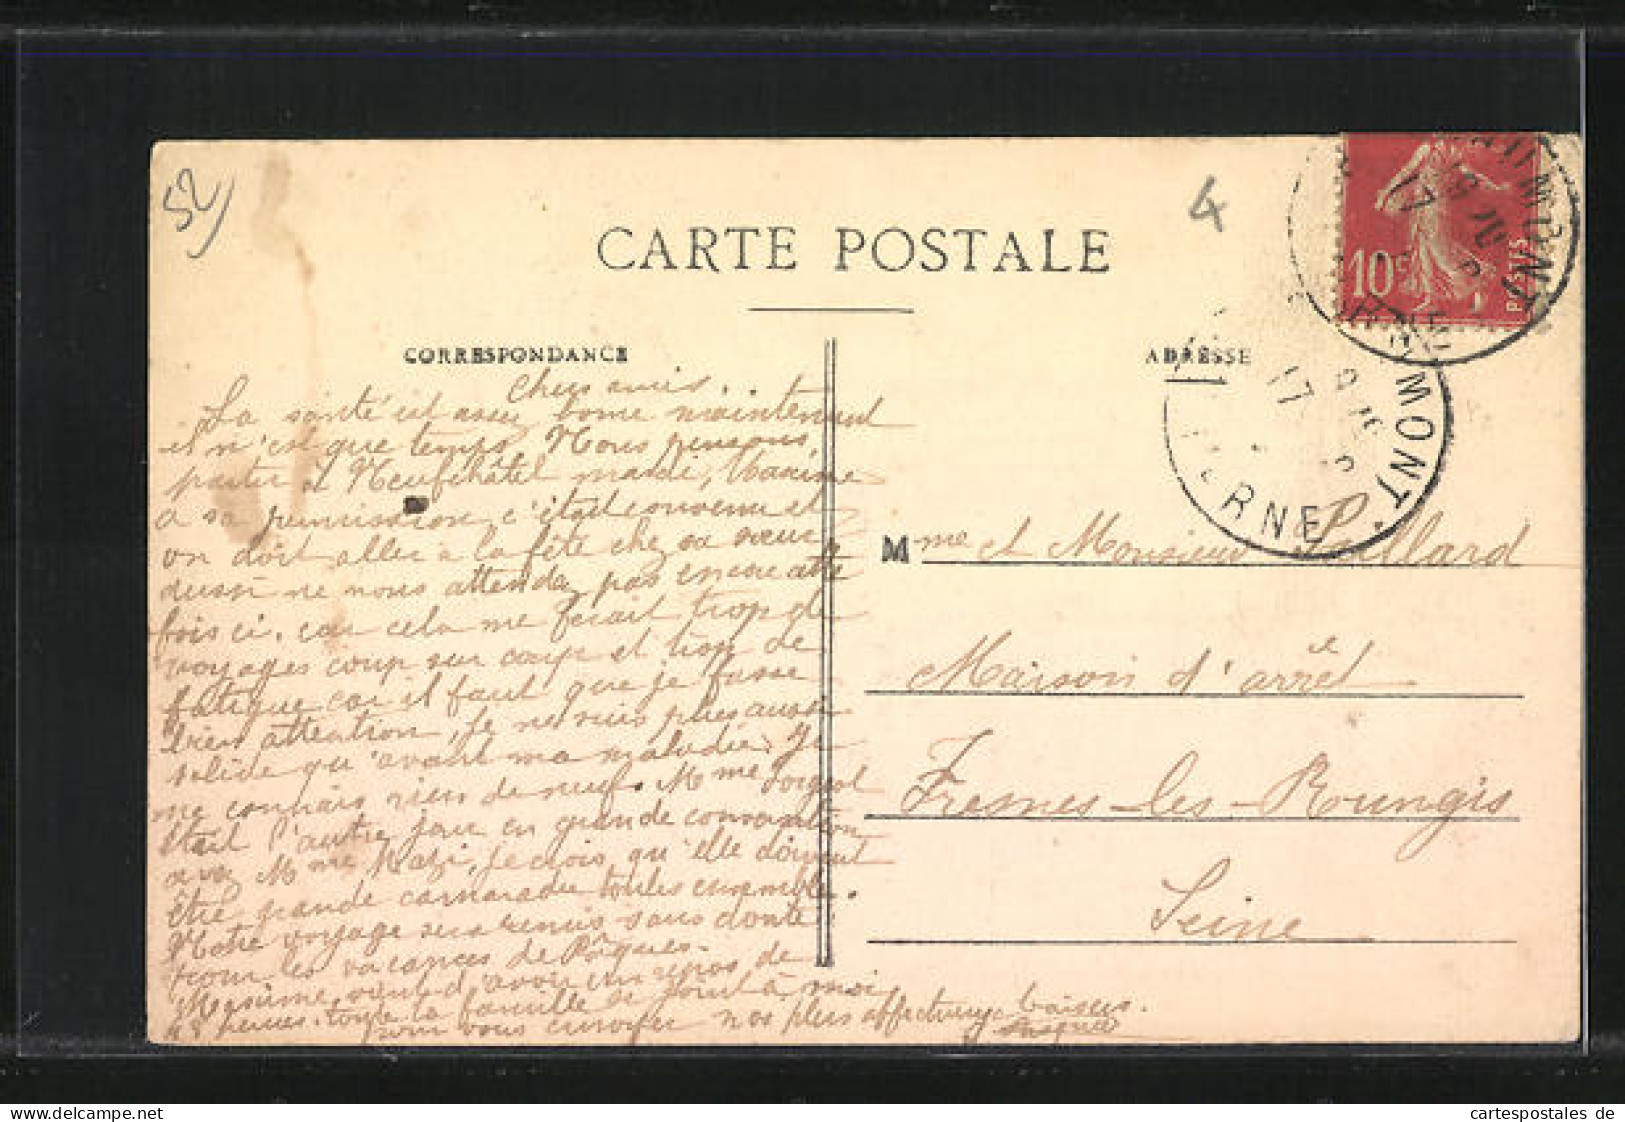 52
4
CARTE POSTALE
CORRESPONDANCE
ADRESSE
10c
POSTES
17
MONT
17
MARNE
Chers amis.
La santé est assez bonne maintenant
et n'est que temps. Nous pensons
partir à Neufchâtel mardi, Maxime
a sa permission, c'était convenu et
on doit aller à la fête chez sa sœur
aussi ne nous attendez pas encore cette
fois ci, car cela me ferait trop de
voyages coup sur coup et trop de
fatigue car il faut que je fasse
bien attention, je ne suis plus aussi
solide qu'avant ma maladie. Je
ne connais rien de neuf. Mme
était l'autre jour en grande conversation
avec Mme Mazi, je crois qu'elle doivent
être grande camarade toutes ensemble.
Notre voyage sera remis sans doute
pour les vacances de Pâques.
Maxime vient d'avoir un repos de
48 heures. toute la famille se joint à moi
pour vous envoyer nos plus affectueux baisers.
Mme et Monsieur Paillard
Maison d'arrêt
Fresnes-les-Rungis
Seine
cartespostales.de